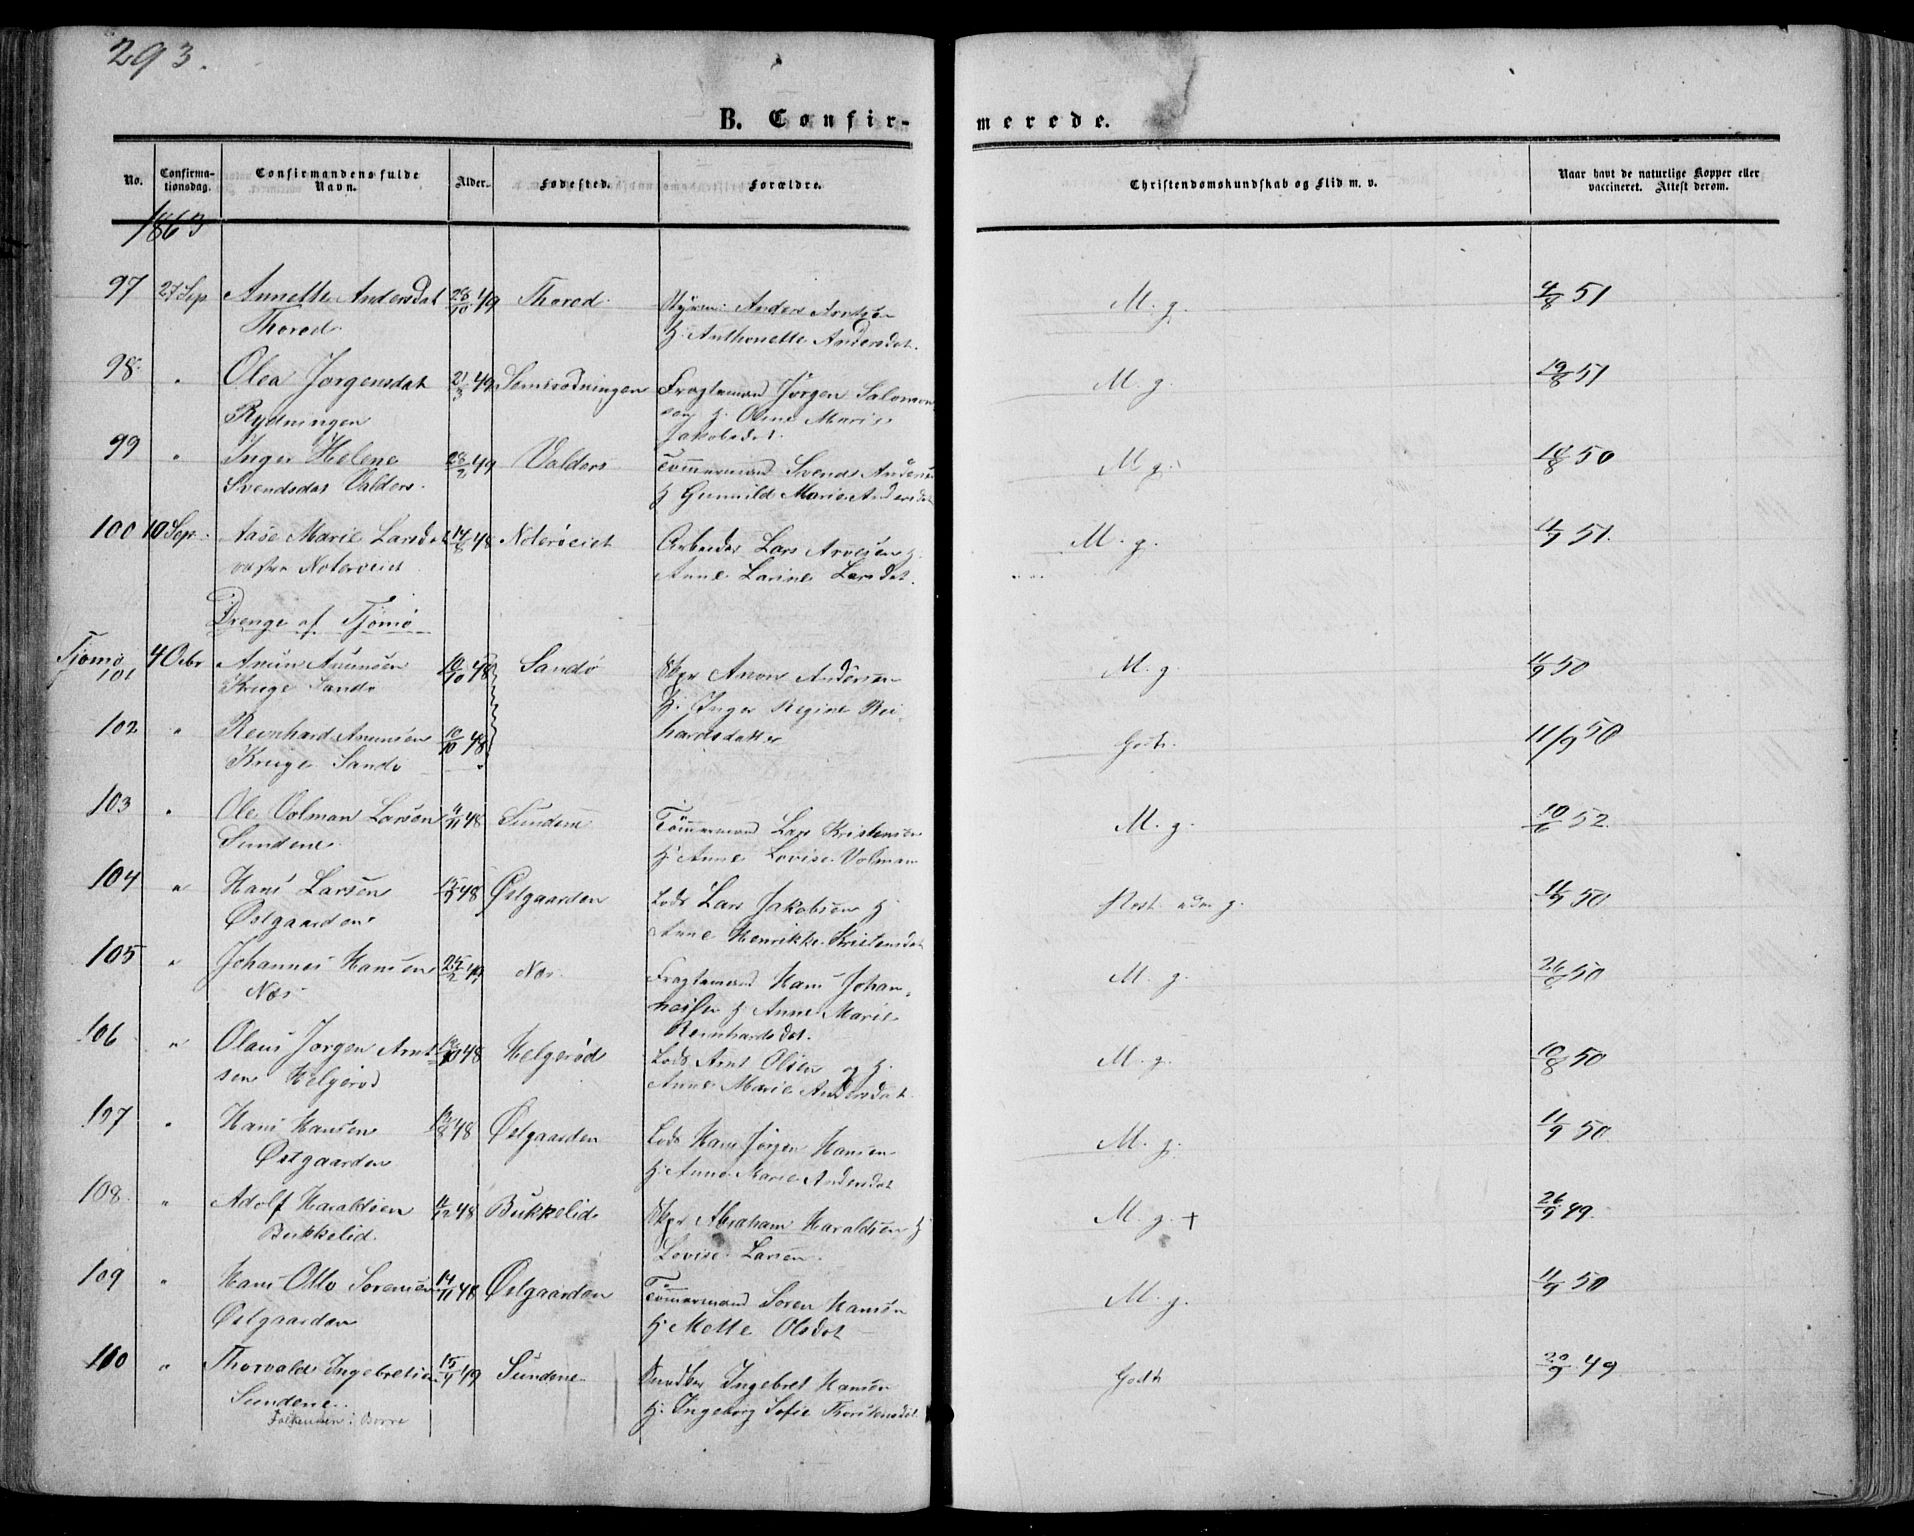 293.
B. Confirmerede.
No. Confirmationsdag. Confirmandens fulde Navn. Alder. Fødested. Forældre. Christendomskundskab og Flid m. v. Naar havt de naturlige Kopper eller vaccineret. Attest derom.
1863
97 27 Sep Annette Andersdat 28/10 49 Thorød Anders M. g. 4/8 51
Thorød. h. Anthonette Andersdat.
98 " Olea Jørgensdat 21/3 49 Fragtemand Jørgen Salomon- M. g. 19/8 51
Rydningen h. Marie
Jakobsdat.
99 " Inger Helene 28/2 49 Valders Tømmermand Svend M. g. 18/8 50
Svendsdat Valders. h Gunnild Marie Andersdat
100 10 Sep. Aase Marie Larsdat 14/8 48 Noterøeiet Arbeider Lars h. M. g. 51.
Noterøeiet Anne Larine Larsdat.
Drenge af Tjømø
Tjømø
101 4 Octbr Anun Anunsen 10/10 48 Sandø Skpr Anun Andersen M. g 11/9 50
Kruge Sandø h. Inger Regine Rei-
102 " Reinhard Anunsen 10/10 48 hardsdatter Godt. 11/9 50
Kruge Sandø
103 " Ole Volman Larsen 4/11 48 Sundene Tømmermand Lars Kristensen M. g. 10/6 52.
Sundene. h. Anne Lovise Volman
104 " Hans Larsen 15/9 48 Østgaarden Lods Lars Jakobsen h. 11/9 50
Østgaarden Anne Henrikke Kristensdat
105 " Johannes Hansen 25/2 49 Næs. Fragtemand Hans Johan- M. g. 26/8 50
Næs h. Anne Marie
Reinhardsdat.
106 " Olaus Jørgen Arnt- 48 Helgerød Lods Arnt Olsen og h. M. g. 10/8 50
sen Helgerød Anne Marie Andersdat.
107 " Hans Hansen 48 Østgaarden Lods Hans Jørgen Hansen M. g. 11/9 50
Østgaarden h. Anne Marie Andersdat
108. " Adolf Haraldsen 48 Bukkelid Skpr Abraham Haraldsen h M. g. + 26/9 49.
Bukkelid. Lovise Larsen.
109 " Hans Otto Sørensen 14/11 48 Østgaarden Tømmermand Søren Hansen M. g. 11/9 50
Østgaarden h. Mette Olsdat
110 " Thorvald Ingebretsen 15/9 49 Sundene Ingebret Hansen Godt 20/9 49
Sundene. h. Ingeborg Sofie Thorstensdat.
i Borre